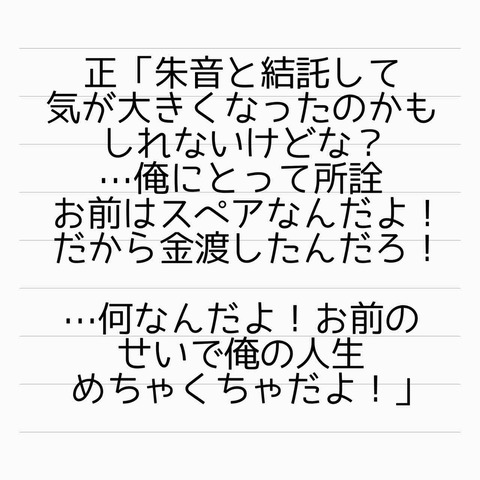 正「朱音と結託して
気が大きくなったのかも
しれないけどな？
…俺にとって所詮
お前はスペアなんだよ！
だから金渡したんだろ！
…何なんだよ！お前の
せいで俺の人生
めちゃくちゃだよ！」